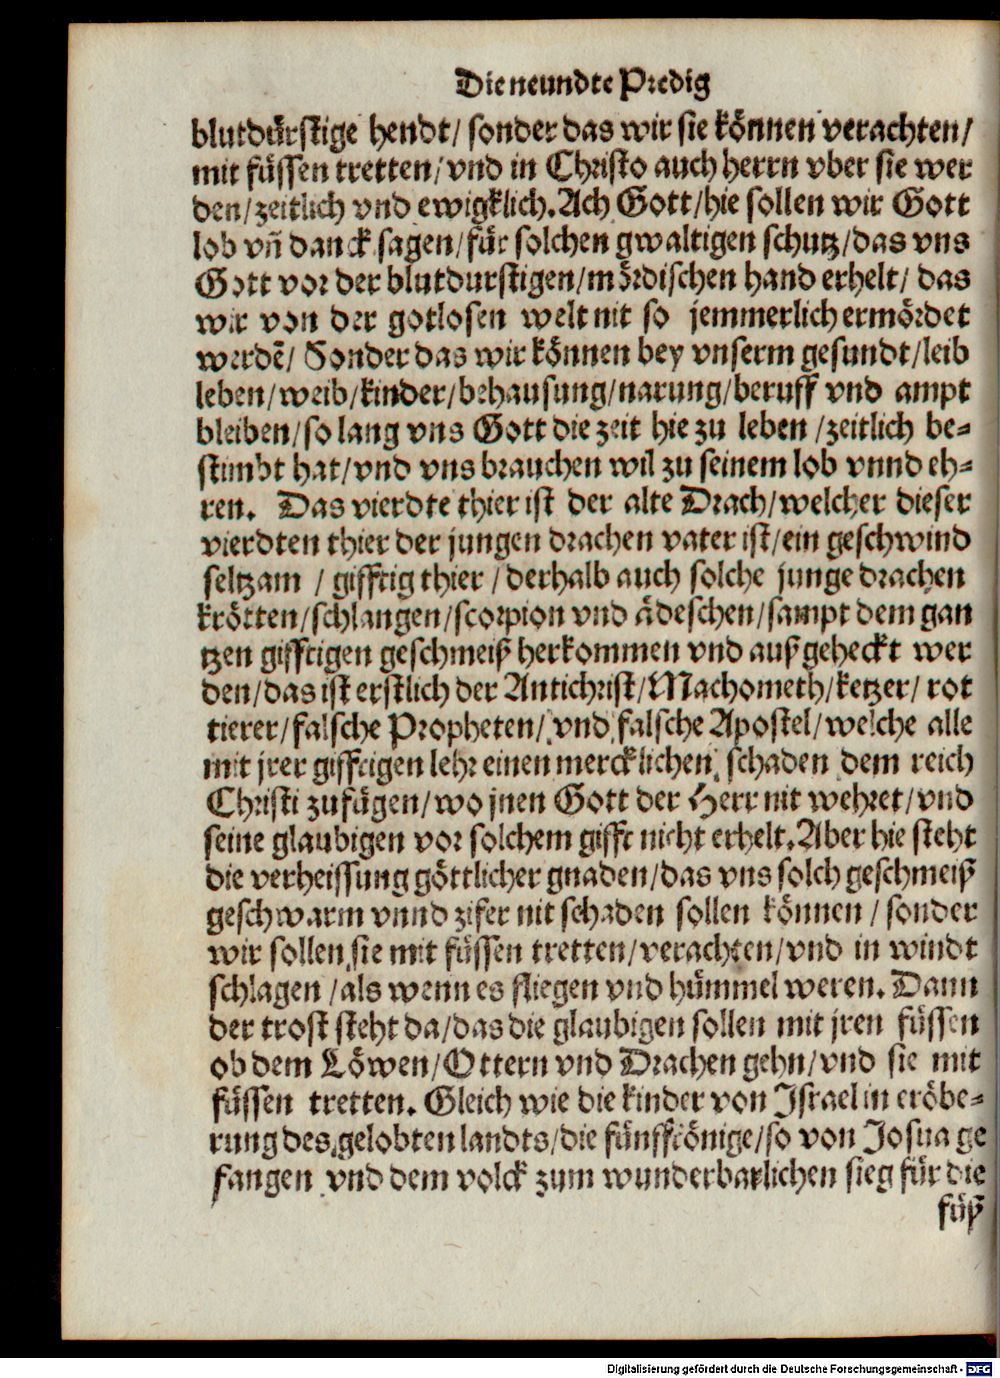 Die neundte Predig
blutdürstige hendt/ sonder das wir sie können verachten/
mit füssen tretten/ vnd in Christo auch herrn vber sie wer
den/ zeitlich vnd ewigklich. Ach Gott/ hie sollen wir Gott
lob vñ danck sagen/ für solchen gwaltigen schutz/ das vns
Gott vor der blutdurstigen/ mördischen hand erhelt/ das
wir von der gotlosen welt nit so jemmerlich ermördet
werdẽ/ Sonder das wir können bey vnserm gesundt/ leib
leben/ weib/ kinder/ behausung/ narung/ beruff vnd ampt
bleiben/ so lang vns Gott die zeit hie zu leben / zeitlich be-
stimbt hat/ vnd vns brauchen wil zu seinem lob vnnd eh-
ren. Das vierdte thier ist der alte Drach/ welcher dieser
vierdten thier der jungen drachen vater ist/ ein geschwind
seltzam / gifftig thier / derhalb auch solche junge drachen
krötten/ schlangen/ scorpion vnd ädeschen/ sampt dem gan
tzen gifftigen geschmeiß herkommen vnd außgeheckt wer
den/ das ist erstlich der Antichrist/ Machometh/ ketzer/ rot
tierer/ falsche Propheten/ vnd falsche Apostel/ welche alle
mit jrer gifftigen lehr einen mercklichen schaden dem reich
Christi zufügen/ wo jnen Gott der Herr nit wehret/ vnd
seine glaubigen vor solchem gifft nicht erhelt. Aber hie steht
die verheissung göttlicher gnaden/ das vns solch geschmeiß
geschwarm vnnd zifer nit schaden sollen können / sonder
wir sollen sie mit füssen tretten/ verachten/ vnd in windt
schlagen / als wenn es fliegen vnd hümmel weren. Dann
der trost steht da/ das die glaubigen sollen mit jren füssen
ob dem Löwen/ Ottern vnd Drachen gehn/ vnd sie mit
füssen tretten. Gleich wie die kinder von Israel in eröbe-
rung des gelobten landts/ die fünff könige/ so von Josua ge
fangen vnd dem volck zum wunderbarlichen sieg für die
füß
Digitalisierung gefördert durch die Deutsche Forschungsgemeinschaft - DFG